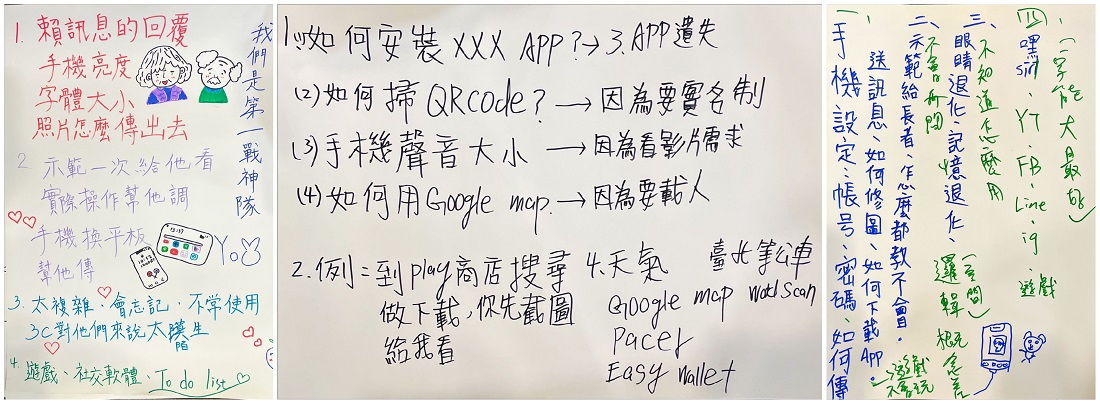 我們是第一戰神隊
1. 賴訊息的回覆
手機亮度
字體大小
照片怎麼傳出去
2. 示範一次給他看
實際操作幫他調
手機換平板
幫他傳
Yo
3. 太複雜、會忘記、不常使用
3C對他們來說太陌生
4. 遊戲、社交軟體、To do list
1.(1)如何安裝XXX APP?→3.APP遺失
(2)如何掃QRcode?→因為要實名制
(3)手機聲音大小→因為看影片需求
(4)如何用Google map.→因為要載人
2.例=到play商店搜尋
做下載,你先截圖
給我看
4.天氣 臺北等公車
Google map
Pacer
Easy wallet
一、手機設定、帳号、密碼、如何傳
送訊息、如何修圖、如何下載APP。
二、示範給長者、怎麼都教不會。
不會
眼睛退化、記憶退化、邏輯
三、不知道怎麼用
遊戲
不會玩
四、嘿siri、YT、FB、Line、ig、遊戲
(字能大最好)